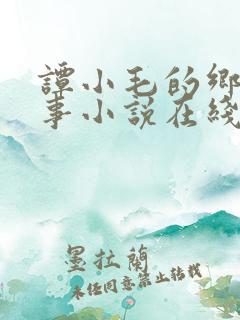 譚小毛的鄉
事小說在綫
墨拉蘭
未经同意禁止转载